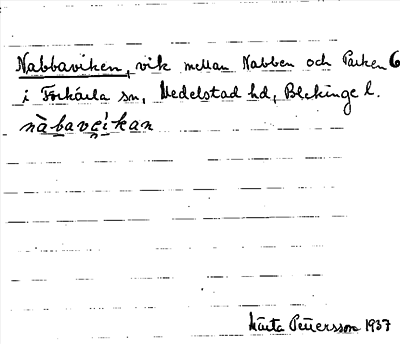 Nabbaviken, vik mellan Nabben och Parken 6
i Förkärla sn, Medelstad hd, Blekinge l.
nàbavei̯kan
Märta Petersson 1937